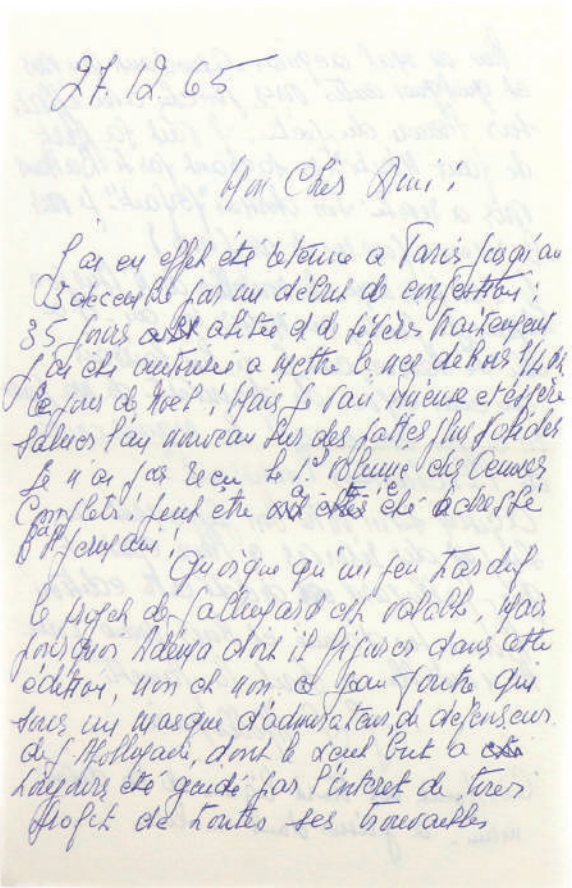 27.12.65
Mon Cher Ami!
J'ai en effet été détenue à Paris jusqu'au
23 decembre par un début de congestion:
35 jours alitée et de sévères traitement
j'ai été autorisée a mettre le nez dehors
le jour de Noel! Mais je vais mieux et espère
saluer l'an nouveau sur des pattes plus solides
Je n'ai pas reçu le 1er Volume des Oeuvres
Complètes peut être a été adressé
Quoique qu'un peu tardif
le projet de Gallimard est valable, mais
pourquoi Adéma doit il figurer dans cette
édition, non et non ce jean-foutre qui
sous un masque d'admirateur, de défenseur
d'Apollinaire, dont le seul but a
toujours été guidé par l'intéret de tirer
profit de toutes ses trouvailles